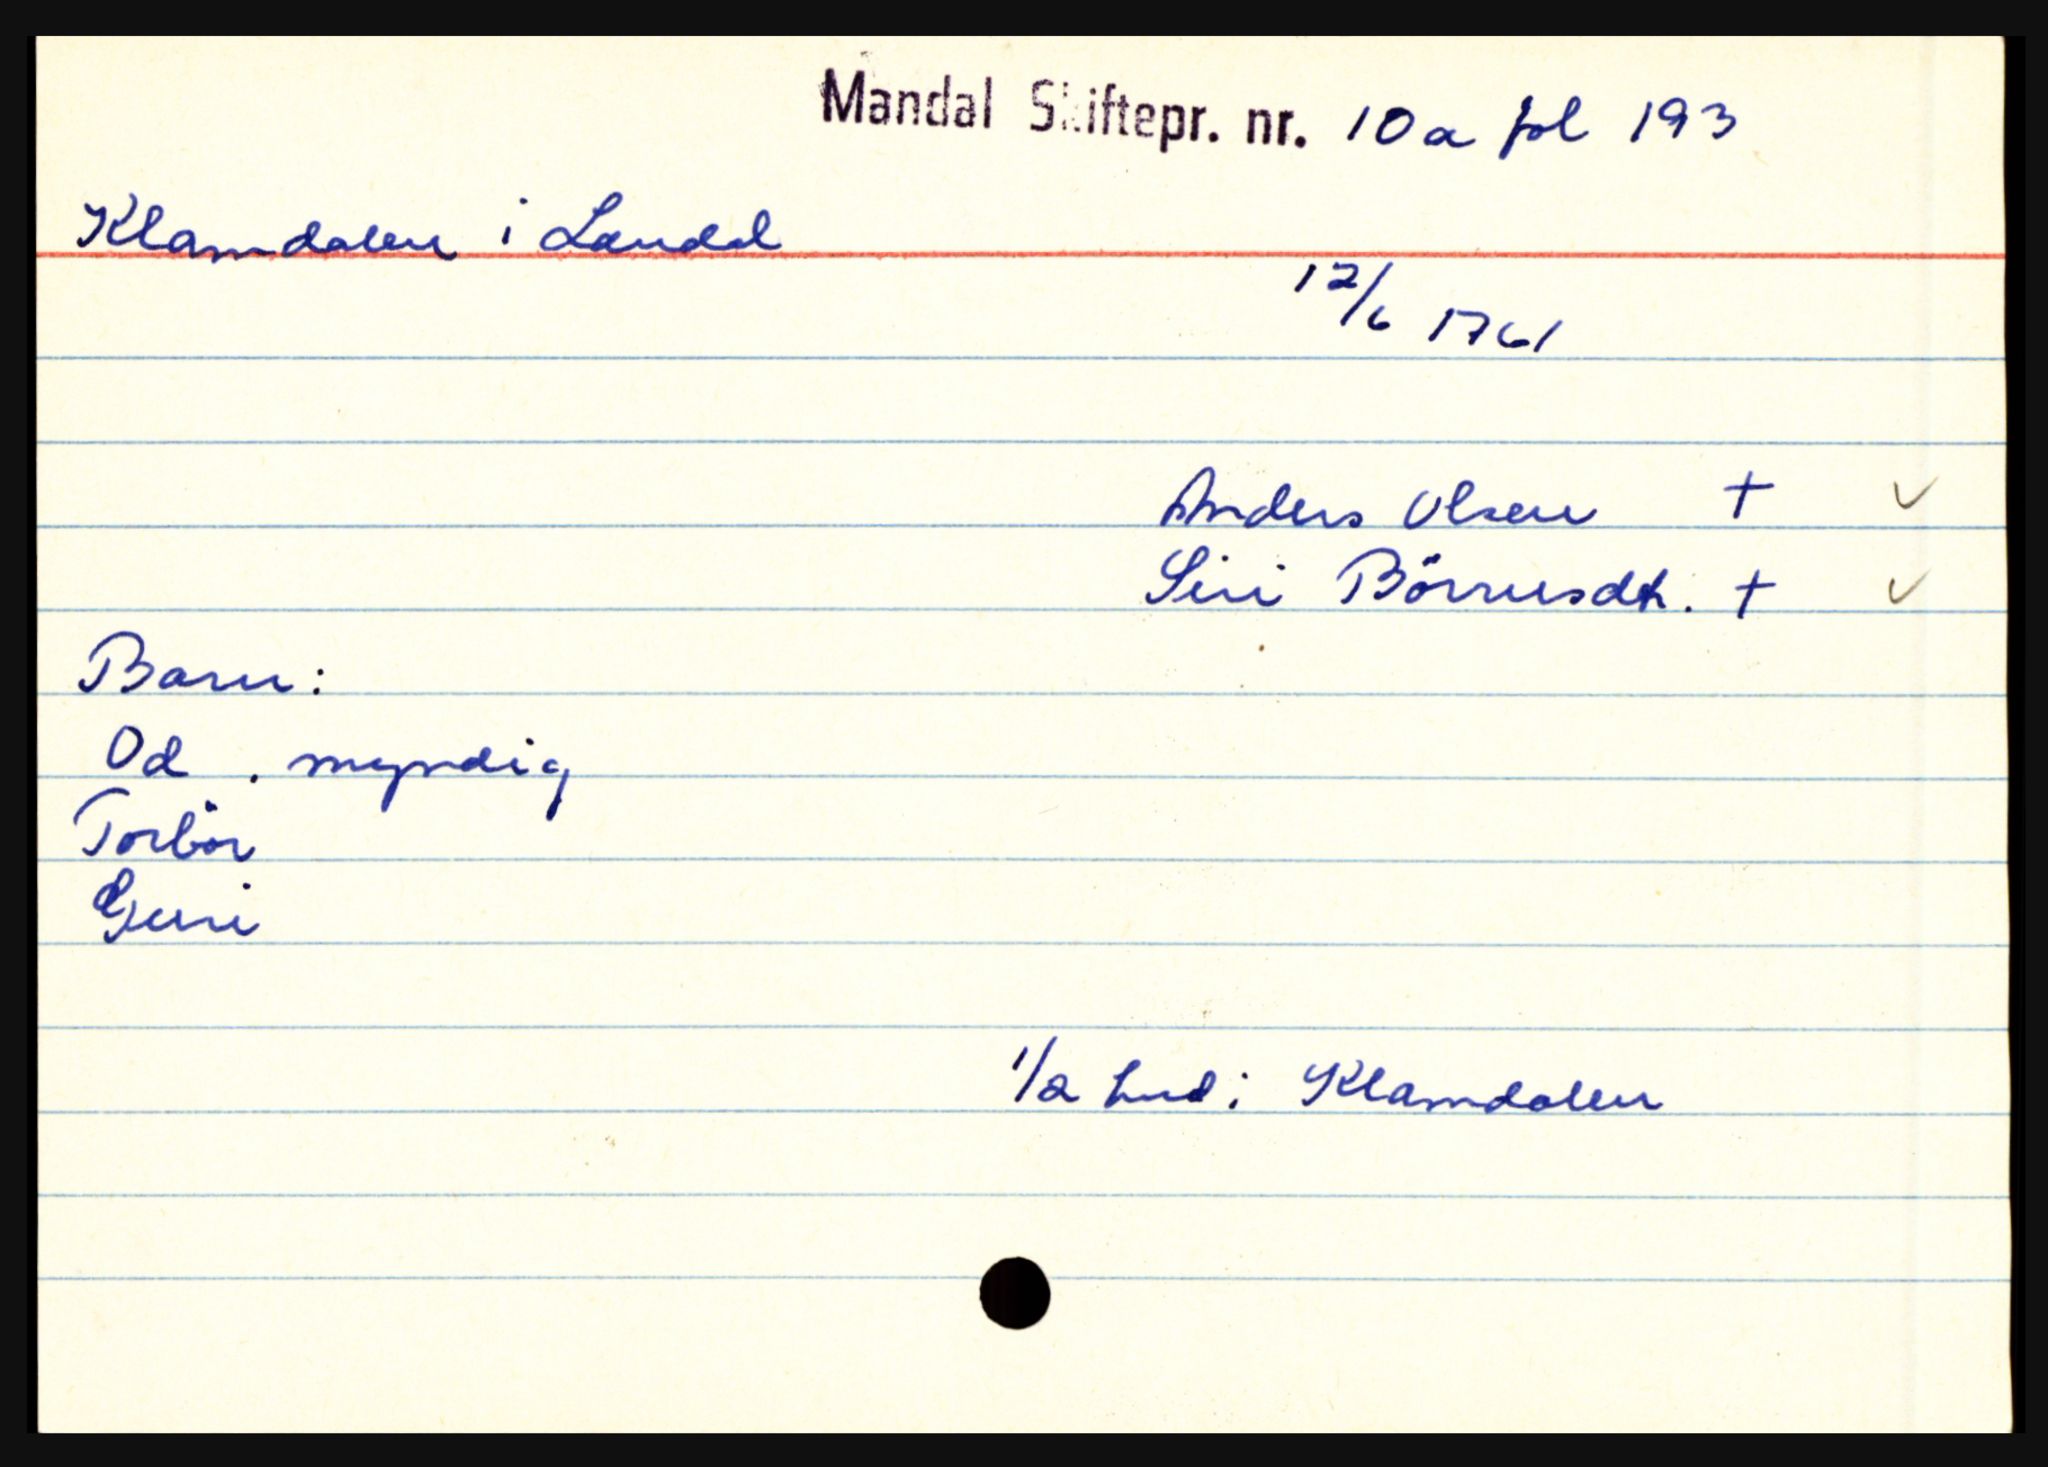 Mandal Skiftepr. nr. 10a fol 193
Klamdalen i Laudal
12/6 1761
Anders Olsen † ✓
Siri Börresdt. † ✓
Barn:
Od . myndig
Torbör
Guri
1/2 hud i Klamdalen